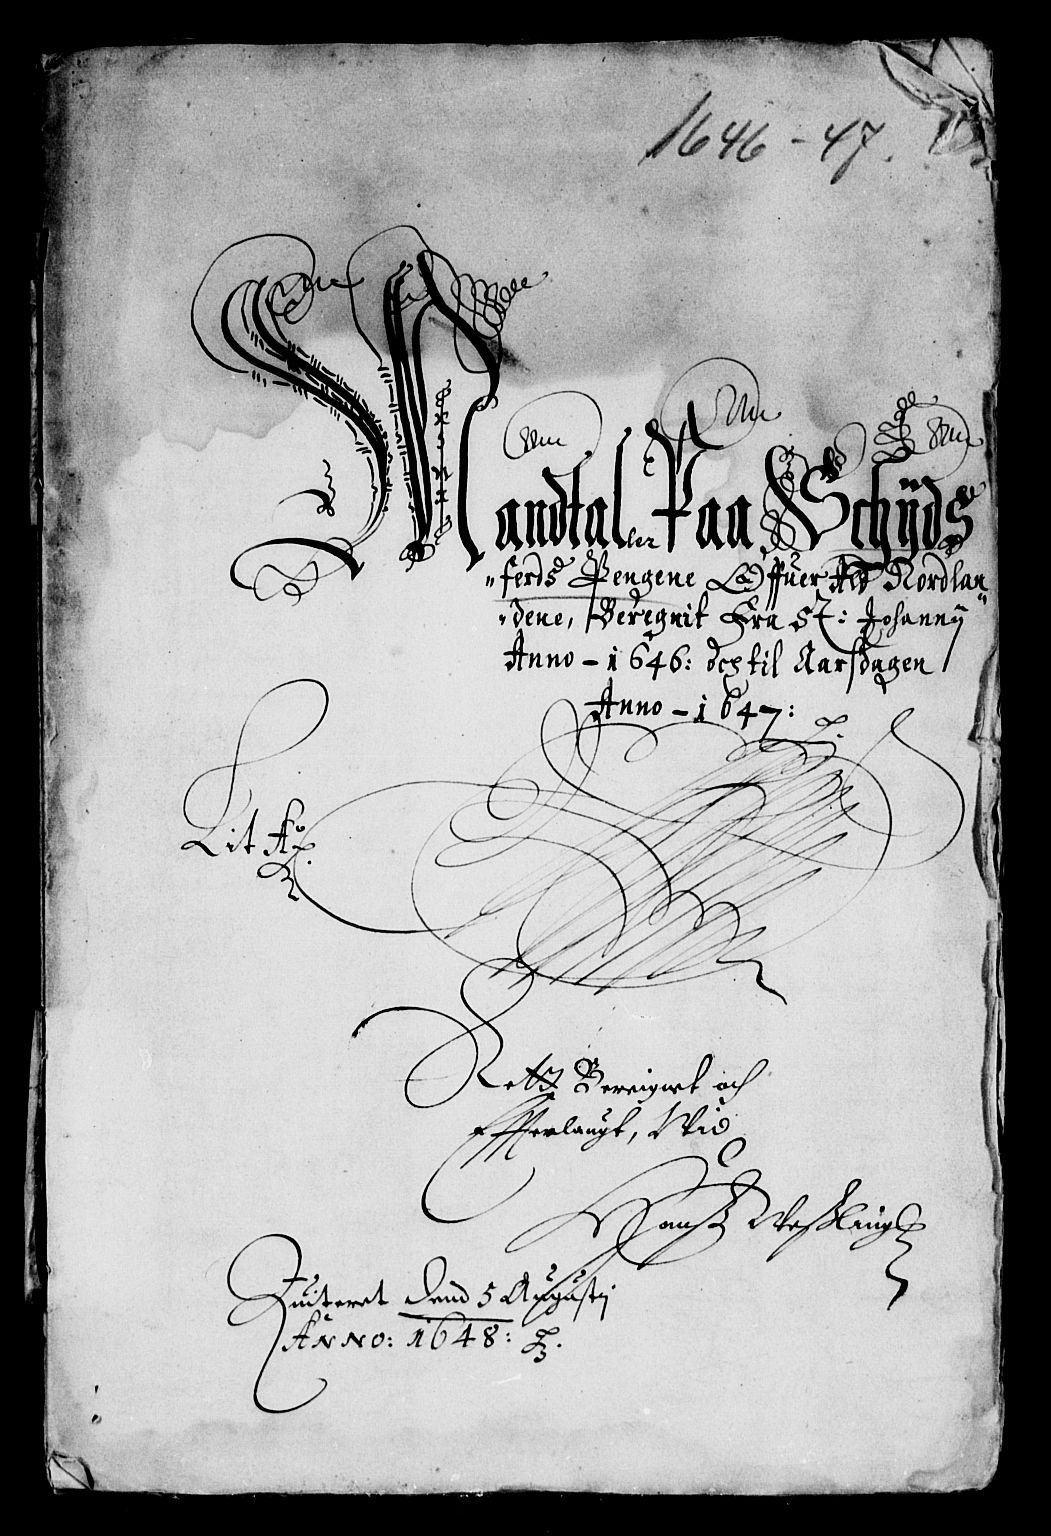 1646-47.
Mandtaller Paa Schÿds
"ferds Pengene Offuer Ald Nordlan"
"dene, Beregnit Fra St: Johannÿ
Anno - 1646: och til Aarsdagen
Anno - 1647:
Lit A
Rett Bereignet och
Efferlaugt, Wid
Hansz Weszling
Quiteret Dend 5 Augustij
Anno: 1648: